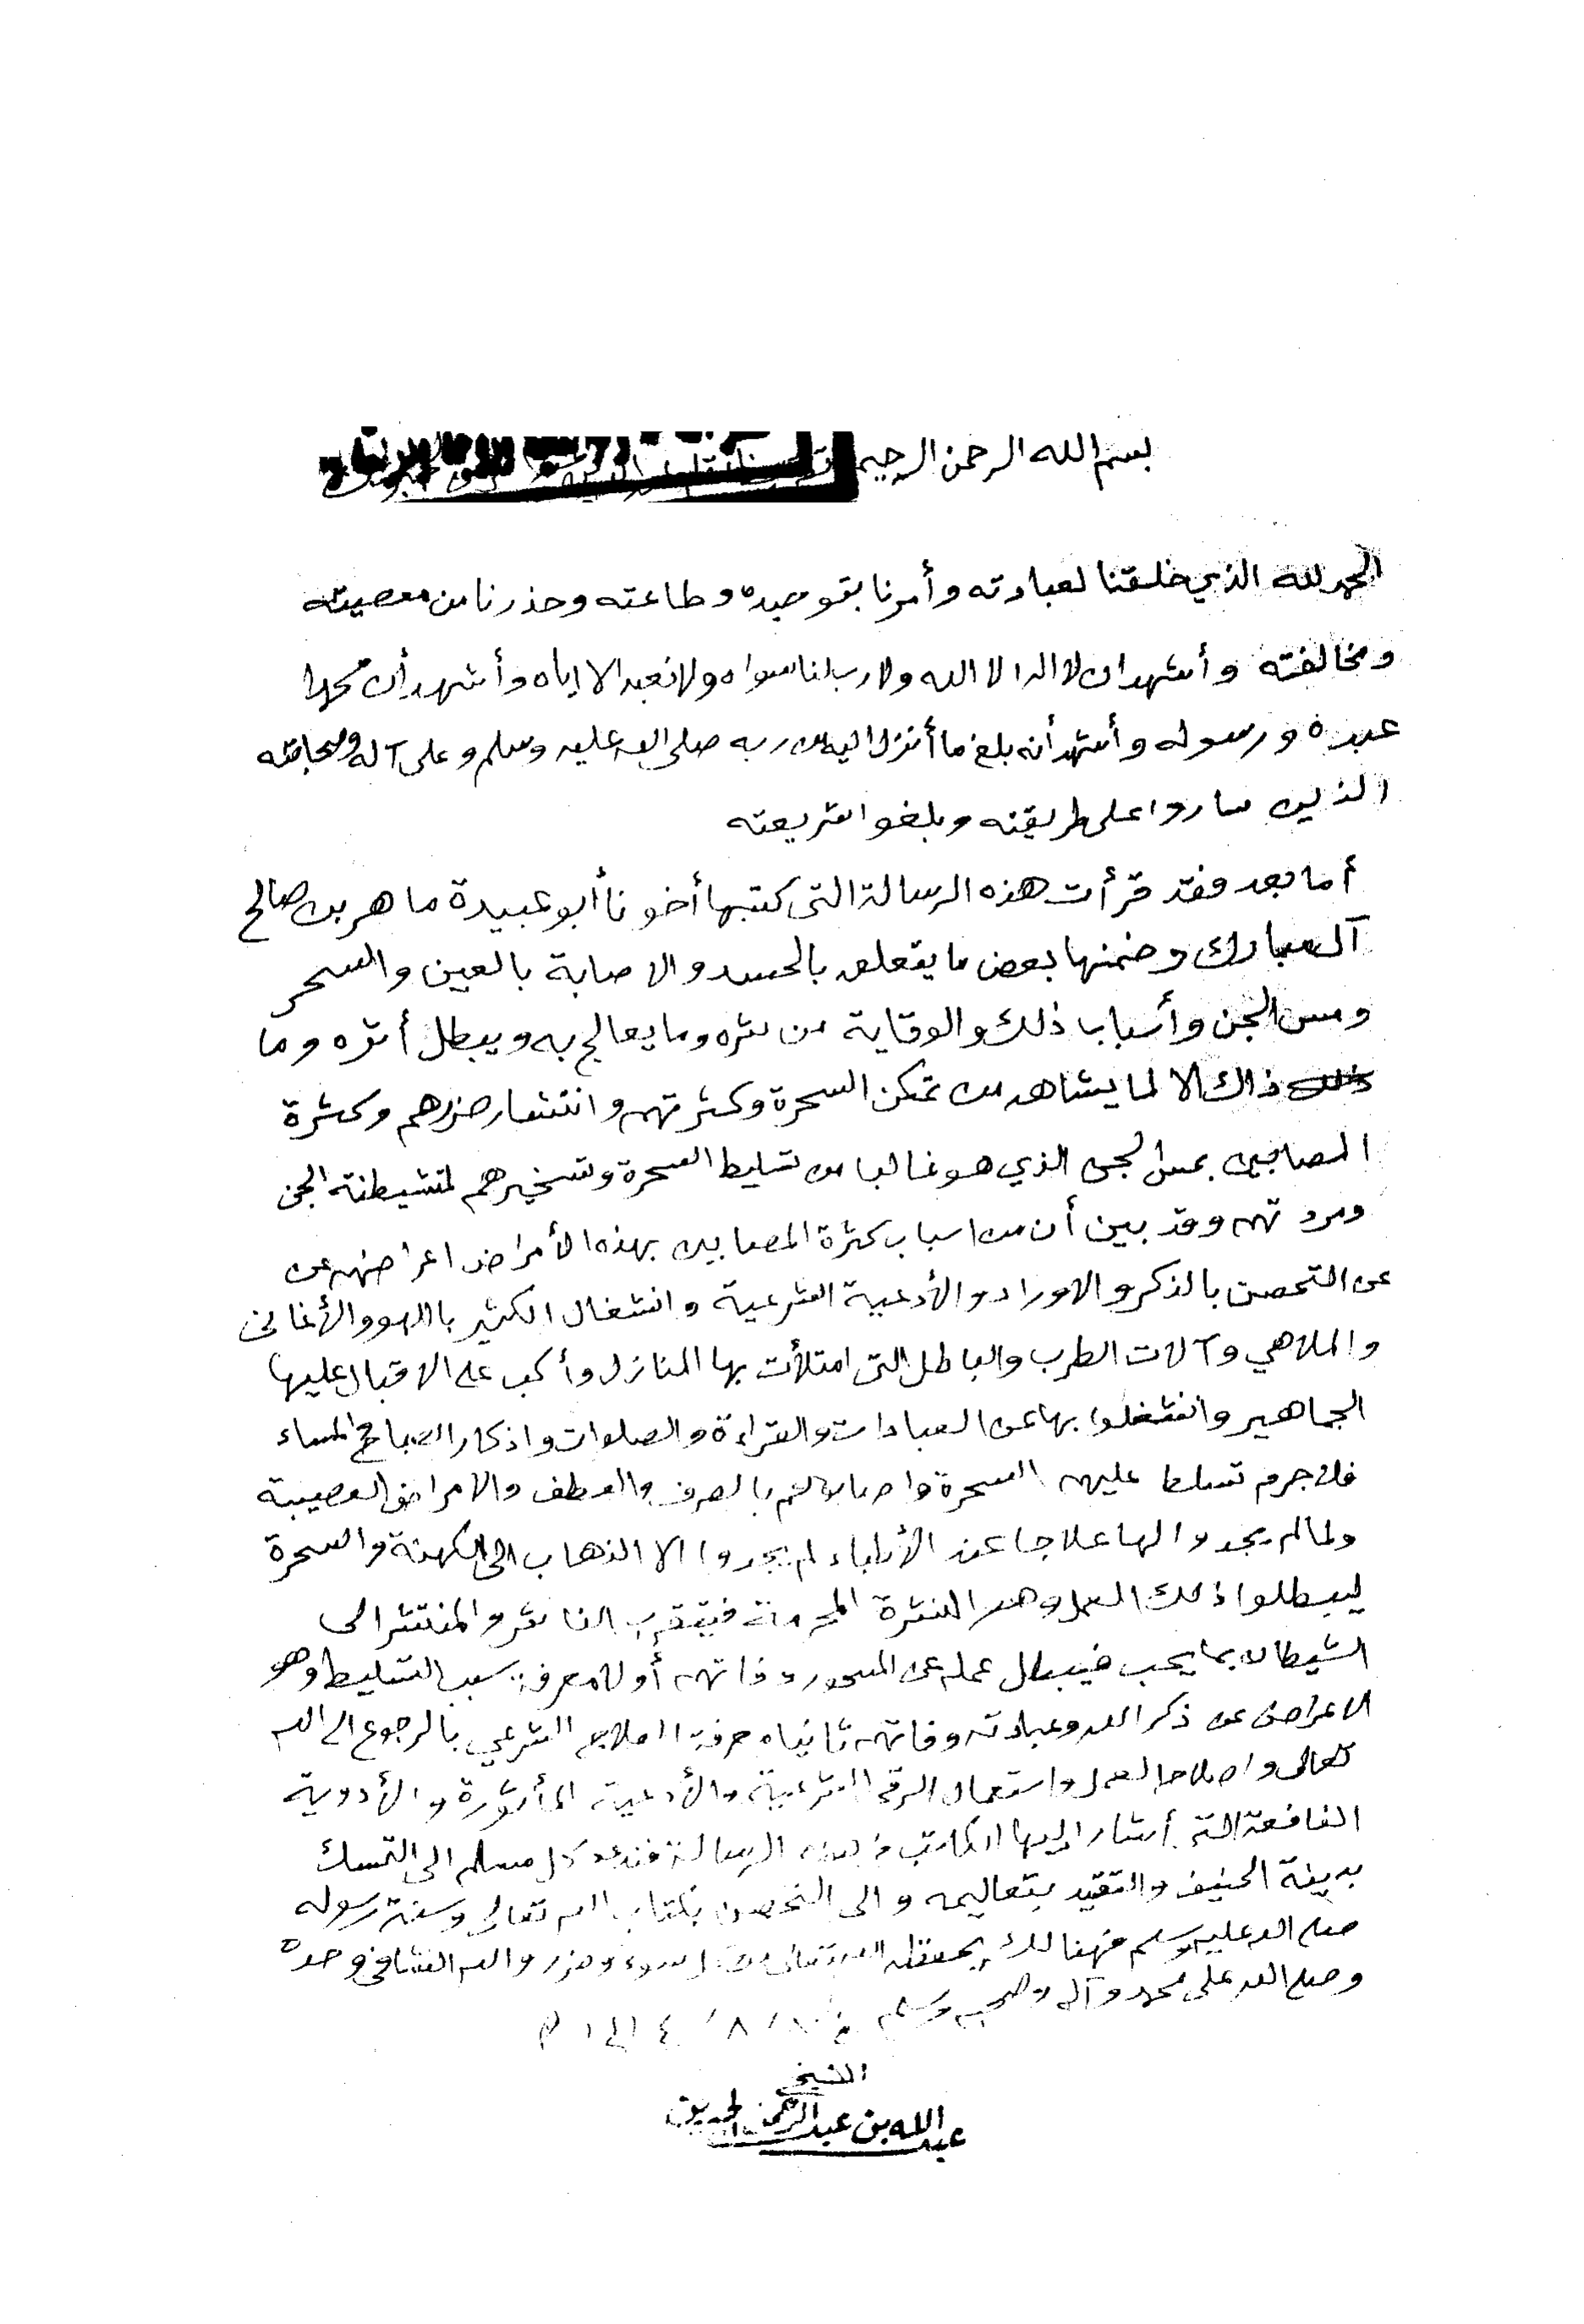 بسم الله الرحمن الرحيم
الحمد لله الذي خلقنا لعبادته وأمرنا بتوحيده وطاعته وحذرنا من معصيته
ومخالفته وأشهد ان لا اله الا الله ولا رب لنا سواه ولا نعبد الا اياه وأشهد أن محمدا
عبده ورسوله وأشهد أنه بلغ ما أنزل اليه من ربه صلى الله عليه وسلم وعلى آله وصحابته
الذين ساروا على طريقته وبلغوا شريعته
أما بعد فقد قرأت هذه الرسالة التى كتبها أخونا أبو عبيدة ماهر بن صالح
آل مبارك وضمنها بعض ما يتعلق بالحسد والاصابة بالعين والسحر
ومس الجن وأسباب ذلك والوقاية من شره وما يعالج به ويبطل أثره وما
ذاك الا لما يشاهد من تمكن السحرة وكثرتهم وانتشار ضررهم وكثرة
المصابين بمس الجن الذي هو غالبا من تسليط السحرة وتسخيرهم لشيطنة الجن
ومردتهم وقد بين أن من اسباب كثرة المصابين بهذه الأمراض اعراضهم عن
عن التحصن بالذكر والاوراد والأدعية الشرعية وانشغال الكثير باللهو والأغاني
والملاهي وآلات الطرب والباطل التى امتلأت بها المنازل وأكب على الاقبال عليها
الجماهير وانشغلوا بها عن العبادات والقراءة والصلوات واذكار الصباح والمساء
فلا جرم تسلط عليهم السحرة واصابوهم بالصرف والعطف والامراض العصيبة
ولما لم يجدوا لها علاجا عند الأطباء لم يجدوا الا الذهاب الى الكهنة والسحرة
ليبطلوا ذلك العمل وهو النشرة المحرمة فيتقرب الناشر والمنتشر الى
الشيطان بما يحب فيبطل عمله عن المسحور وفاتهم أولا معرفة سبب التسليط وهو
الاعراض عن ذكر الله وعبادته وفاتهم ثانيا معرفة العلاج الشرعي بالرجوع الى الله
تعالى واصلاح العمل واستعمال الرقى الشرعية والأدعية المأثورة والأدوية
النافعة التي أشار اليها الكاتب في هذه الرسالة فندعو كل مسلم الى التمسك
بدينه الحنيف والتقيد بتعاليمه والى التحصن بكتاب الله تعالى وسنة رسوله
صلى الله عليه وسلم فهنالك يحفظه الله تعالى من كل سوء وضرر والله الشافي وحده
وصلى الله على محمد وآله وصحبه وسلم
الشيخ
عبدالله بن عبدالرحمن الجبرين